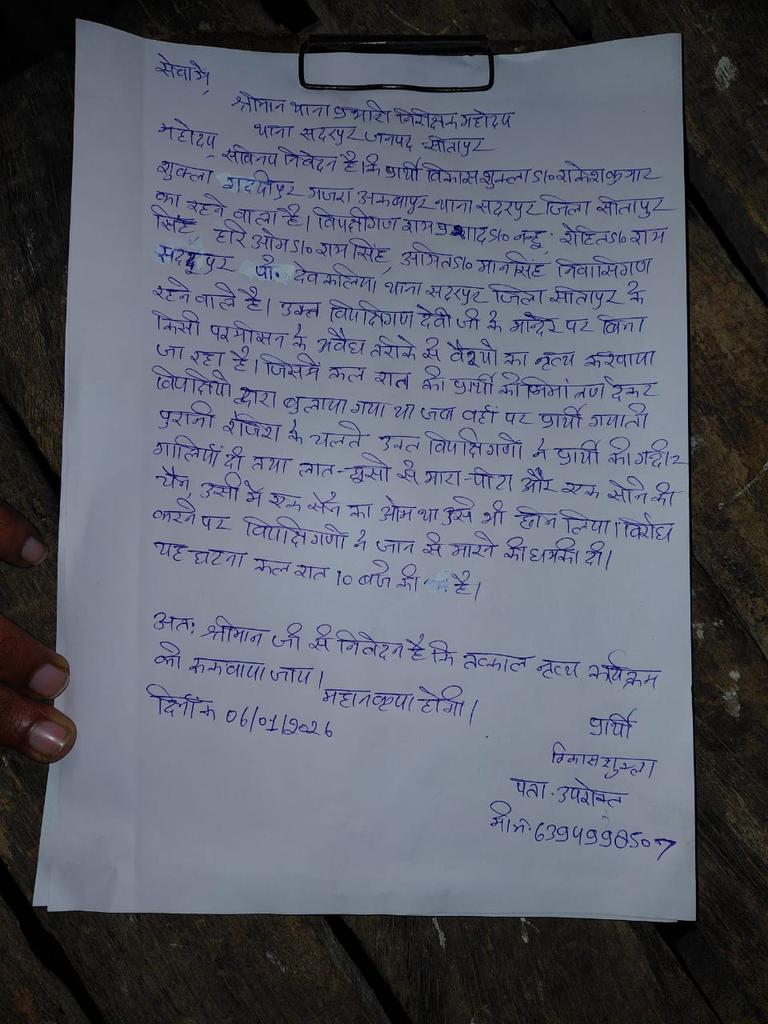 सेवामे,
श्रीमान थाना प्रभारी निरीक्षक महोदय
थाना सदरपुर जनपद सीतापुर
महोदय, सविनय निवेदन है कि प्रार्थी विकास शुक्ला S/o राकेश कुमार
शुक्ला गजरा अकबापुर थाना सदरपुर जिला सीतापुर
का रहने वाला है। विपक्षीगण रामप्रसाद S/o नन्हू, रोहित S/o राम
सिंह हरि ओम S/o राम सिंह, अमित S/o मानसिंह निवासिगण
सदरपुर पो. देवकलिया थाना सदरपुर जिला सीतापुर के
रहने वाले है। उक्त विपक्षिगण देवी जी के मन्दिर पर बिना
किसी परमीसन के अवैध तरीके से वैश्यो का नृत्य करवाया
जा रहा है। जिसमे कल रात को प्रार्थी को देकर
विपक्षियो द्वारा बुलाया गया था जब वहाँ पर प्रार्थी गया तो
पुरानी रंजिश के चलते उक्त विपक्षिगणो ने प्रार्थी को गन्दी२
गालियाँ दी तथा लात-घूसो से मारा-पीटा और एक सोने की
चैन, उसी मे एक सोने का ओम था उसे भी छीन लिया। विरोध
करने पर विपक्षिगणो ने जान से मारने की धमकी दी।
यह घटना कल रात 10 बजे की है।
अतः श्रीमान जी से निवेदन है कि तत्काल नृत्य कार्यक्रम
को रुकवाया जाय।
महान कृपा होगी।
दिनाँक 06/01/2026
प्रार्थी
विकास शुक्ला
पता. उपरोक्त
मो.न. 6394998507